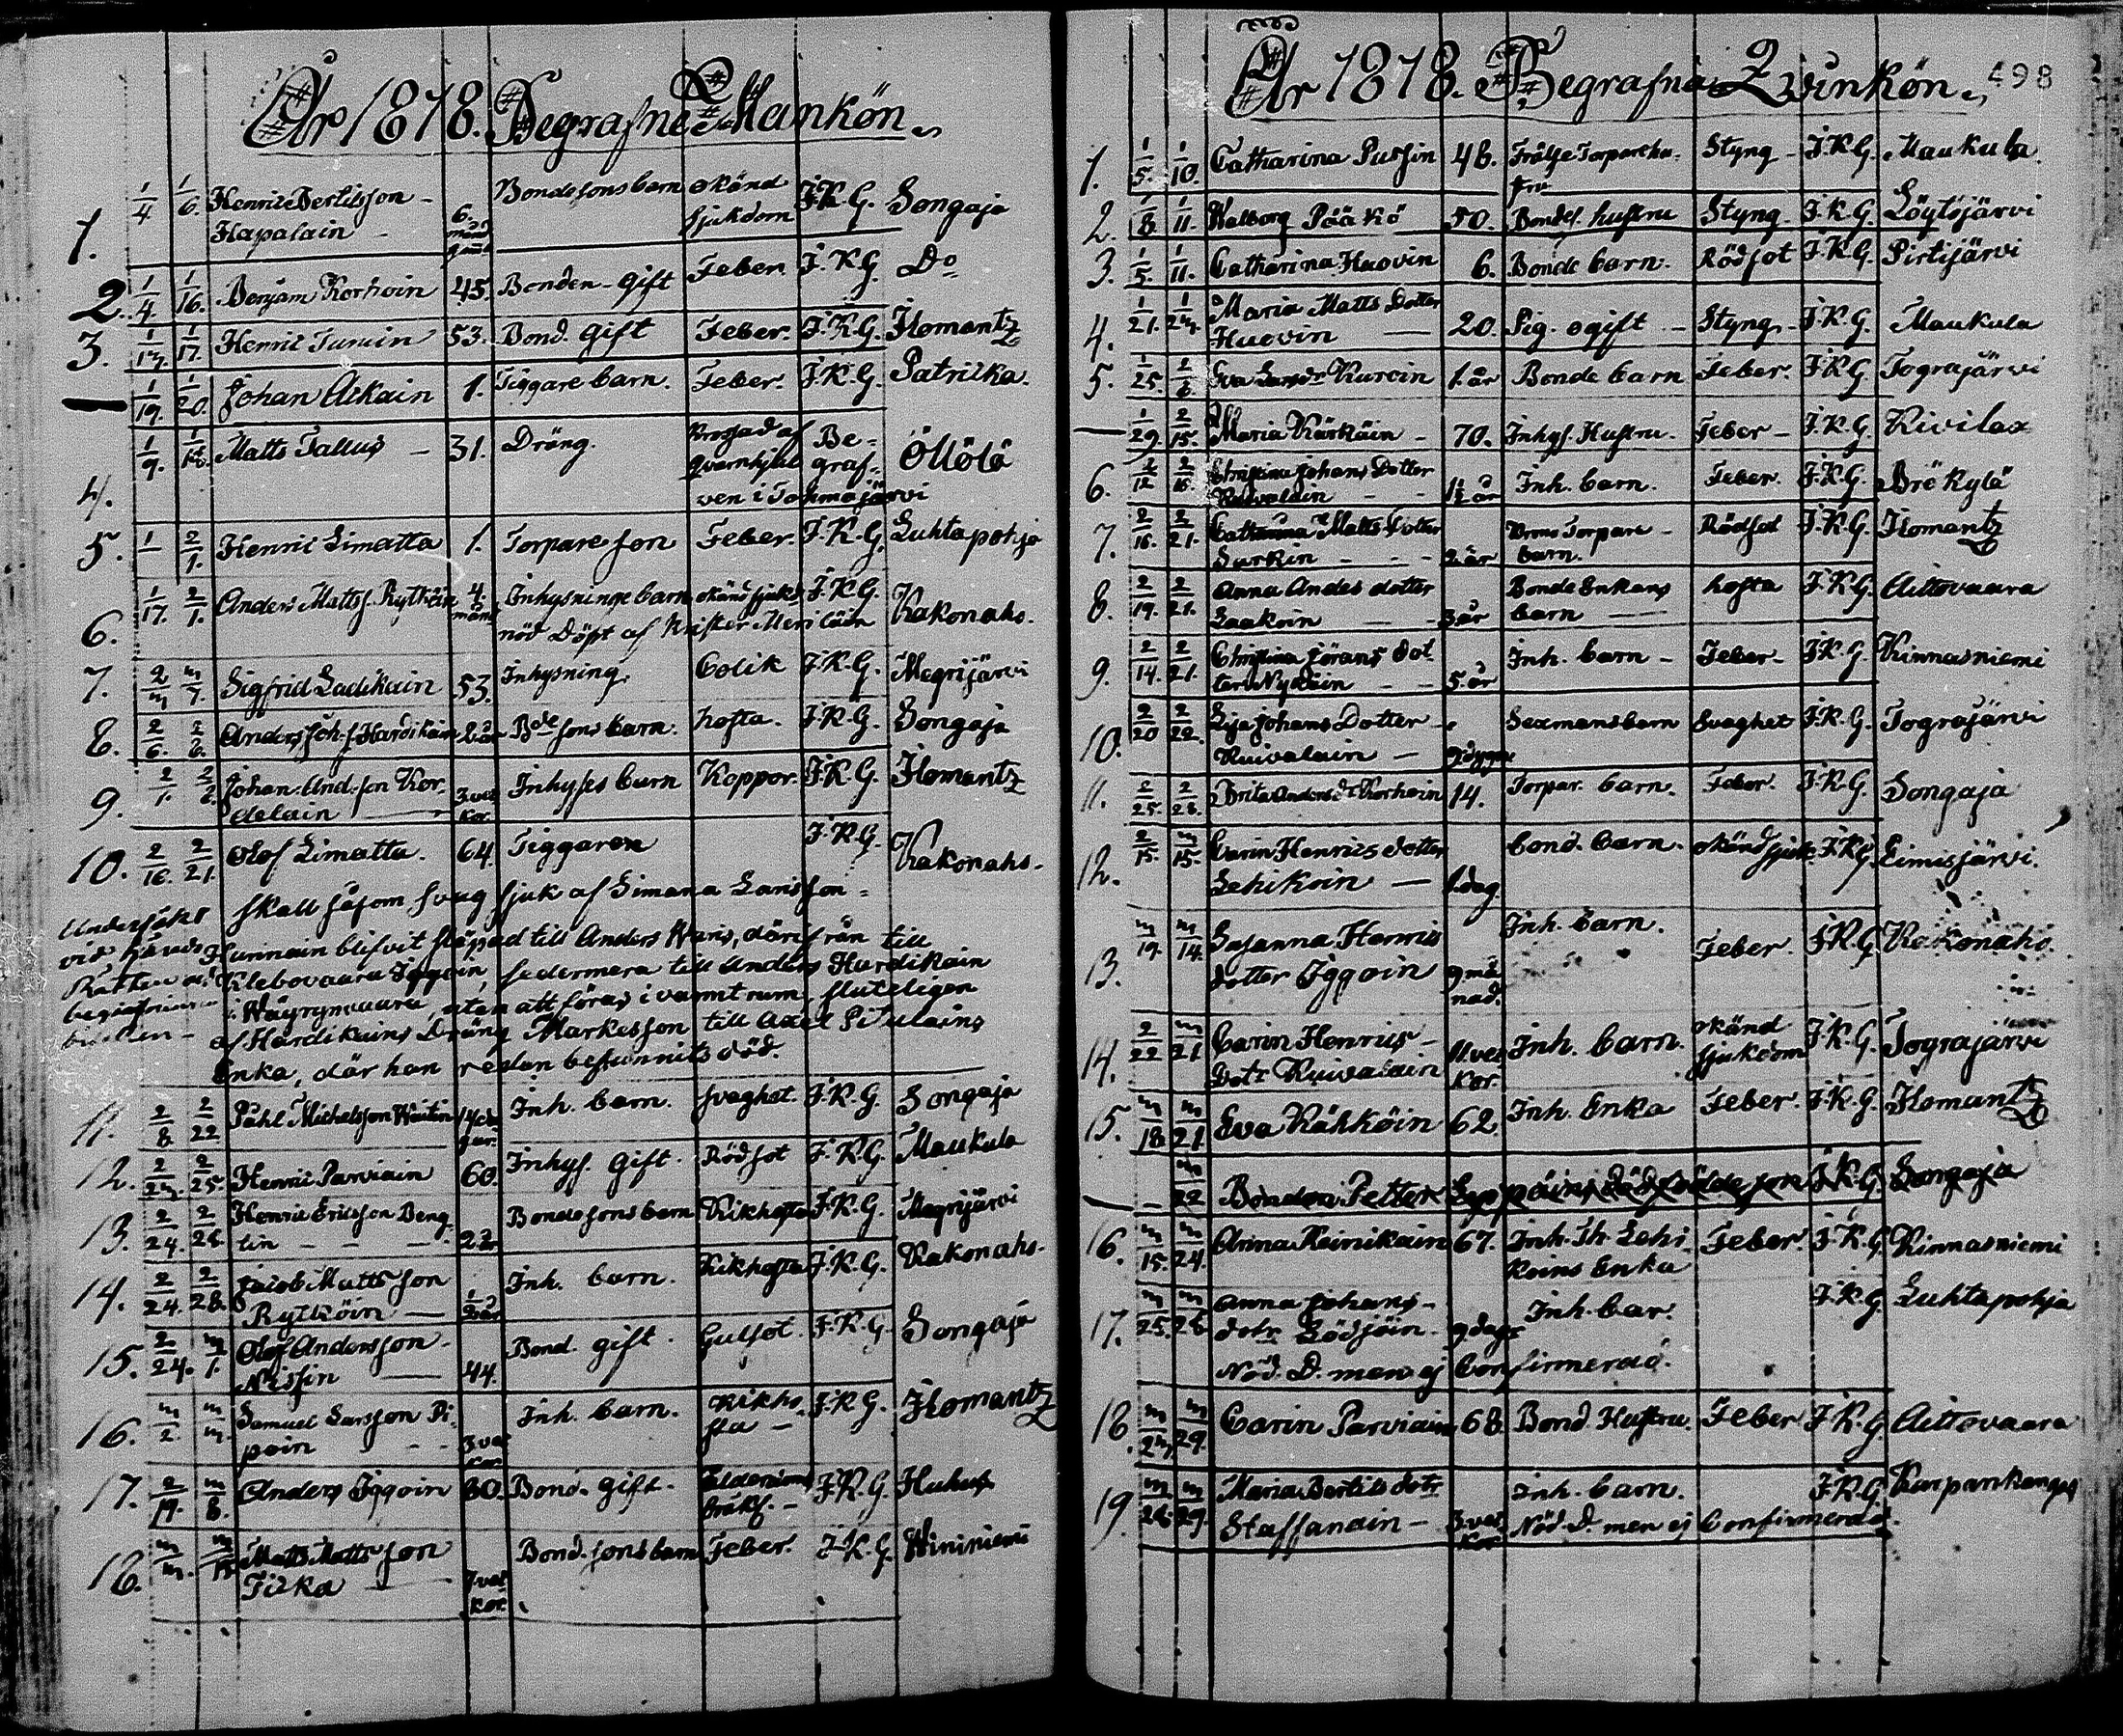 År 1818. Begrafne Mankön.
1. 1/4 1/6. Henric Bertilsson Hapalain 6. månd. gam̃l Bondesons barn okänd sjukdom J.K.G. Songaja
2. 1/4. 1/16. Benjam Korhoin 45. Bonden gift Feber J.K.G. Do
3. 1/17. Henric Turuin 53. Bond. gift Feber. J.K.G. Ilomantz
— 1/19. 1/20. Johan Aikain 1. Tiggare barn. Feber. J.K.G. Patricka.
4. 1/9. Matts Tallus — 31. Dräng. Krossad af Qvarnhjulet Be-
graf-
ven i Tohmajärvi Öllölä
5. 1/— 2/1. Henric Limatta 1. Torpare son Feber. J.K.G. Luhtapohja
6. 1/17. 2/1. Anders Matts. Rytköin 4. mån. Inhysninge barn okänd sjukd. J.K.G. Kakonahs.
nöd Döpt af Krister Meriläin
7. Sigfrid Ladikain 53. Inhysning. Colik J.K.G. Megrijärvi
8. 2/6. Anders Joh.s. Hardikain 2 år Bde sons barn. hosta. J.K.G. Songaja
9. 2/1. Johan And.son Kor-
delain 3 vec kor. Inhyses barn Koppor. J.K.G. Ilomantz
10. 2/16. 2/21. Olof Limatta. 64. Tiggaren J.K.G. Kakonahs.
skall såsom svag sjuk af Simana Larisson
Undersökt
vid Härads
Rätten
Hurinain blifvit släpad till Anders Wans, därifrån till
Klebovaara Iggoin, sedermera till Anders Hardikain
i Wäyrynvaara, utan att föras i varmt rum, sluteligen
af Hardikains Dräng Markesson till Axel Pitulains
Enka, där han redan befunnits död.
11. 2/8. 2/22 Påhl Michelsson Inh. barn. svaghet. J.K.G. Songaja
12. 2/25. Henric Parviain 60. Inhys. gift. Rödsot J.K.G. Maukula
13. 2/24. 2/28. Henric Ericsson Beng-
tin 2 år Bondesons barn Kikhosta J.K.G. Megrijärvi
14. 2/24. 2/28. Jacob Mattsson
Rytköin — Inh. barn. Kikhosta J.K.G. Kakonahs.
15. 2/24. m/1. Olof Andersson
Nissin — 44. Bond. gift. Gulsot. J.K.G. Songaja
16. m/2 Samuel Larsson Pi-
poin 3 vec kor Inh. barn. Kikho-
sta — J.K.G. Ilomantz
17. 2/19. m/8. Anders Iggoin 80. Bond. gift. Ålderdoms bräckl. — J.K.G. Huhus
18. Matts Mattsson
Tiska 7 vec kor. Bond. sons barn Feber. J.K.G. Wininiemi
År 1818. Begrafne Qvinkön. 498
1. 1/5. 1/10. Catharina Pussin 48. Frälse Torpare hu-
stru Styng J.K.G. Maukula
2. 1/8. 1/11. Walborg Pääkö 50. Bondes hustru Styng J.K.G. Löytöjärvi
3. 1/5. 1/11. Catharina Huovin 6. Bonde barn. Rödsot J.K.G. Pirtijärvi
4. 1/21. Maria Matts Dotter
Huovin — 20. Pig. ogift Styng J.K.G. Maukula
5. 1/25. 2/6. Eva Kuroin 1. år Bonde barn Feber. J.K.G. Tograjärvi
— 1/29 2/15. Maria Kärkäin 70. Inhys. Hustru. Feber J.K.G. Kivilax
6. 2/12 2/15. Christina Johans Dotter
Kuivalain 1½ år Inh. barn. Feber. J.K.G. Brökylä
7. 2/16. 2/21. Catharina Matts Dotter
Surkin 2 år Torpare
barn. Rödsot J.K.G. Ilomantz
8. 2/19. 2/21. Anna Anders dotter
Laakoin 3 år Bonde Enkans
barn — hosta J.K.G. Aittovaara
9. 2/14. 2/21. Christina Jörans dot-
ter Nykäin 5. år Inh. barn Feber J.K.G. Kinnasniemi
10. 2/20 2/22. Lisa Johans Dotter
Kuivalain — Sexmans barn Svaghet J.K.G. Tograjärvi
11. 2/25. 2/28. Brita Anders Dr Korhoin 14. Torpar. barn. Feber. J.K.G. Songaja
12. 2/15. m/15. Carin Henrics dotter
Lehikoin — 1 dag bond. barn. okänd sjukd. J.K.G. Eimisjärvi.
13. m/14. Susanna Henrics
dotter Iggoin 9 må-
nad. Inh. barn. Feber. J.K.G. Kakonahs.
14. 2/22 m/21. Carin Henrics
Dotr Kuivalain 11. vec
kor. Inh. barn. okänd
sjukdom J.K.G. Tograjärvi
15. m/18. m/21. Eva Rähköin 62. Inh. Enka Feber. J.K.G. Ilomantz
— m/22 Bonden Petter Seppäins dödfödde son J.K.G. Songaja
16. m/15. m/24. Anna Reinikain 67. Inh. Th. Lehi-
koins Enka Feber. J.K.G. Kinnasniemi
17. m/25. m/28 Anna Johans-
dotr Lödjöin. 9 dagr Inh. bar. J.K.G. Luhtapohja
Nöd. D. men ej Confirmerad.
18. m/29. Carin Parviain 68. Bond. Hustru. Feber J.K.G. Aittovaara
19. m/28. m/29. Maria Bertils dotr
Staffanain — 3 vec
kor Inh. barn. J.K.G. Kurpankangas
Nöd. D. men ej Confirmerad.